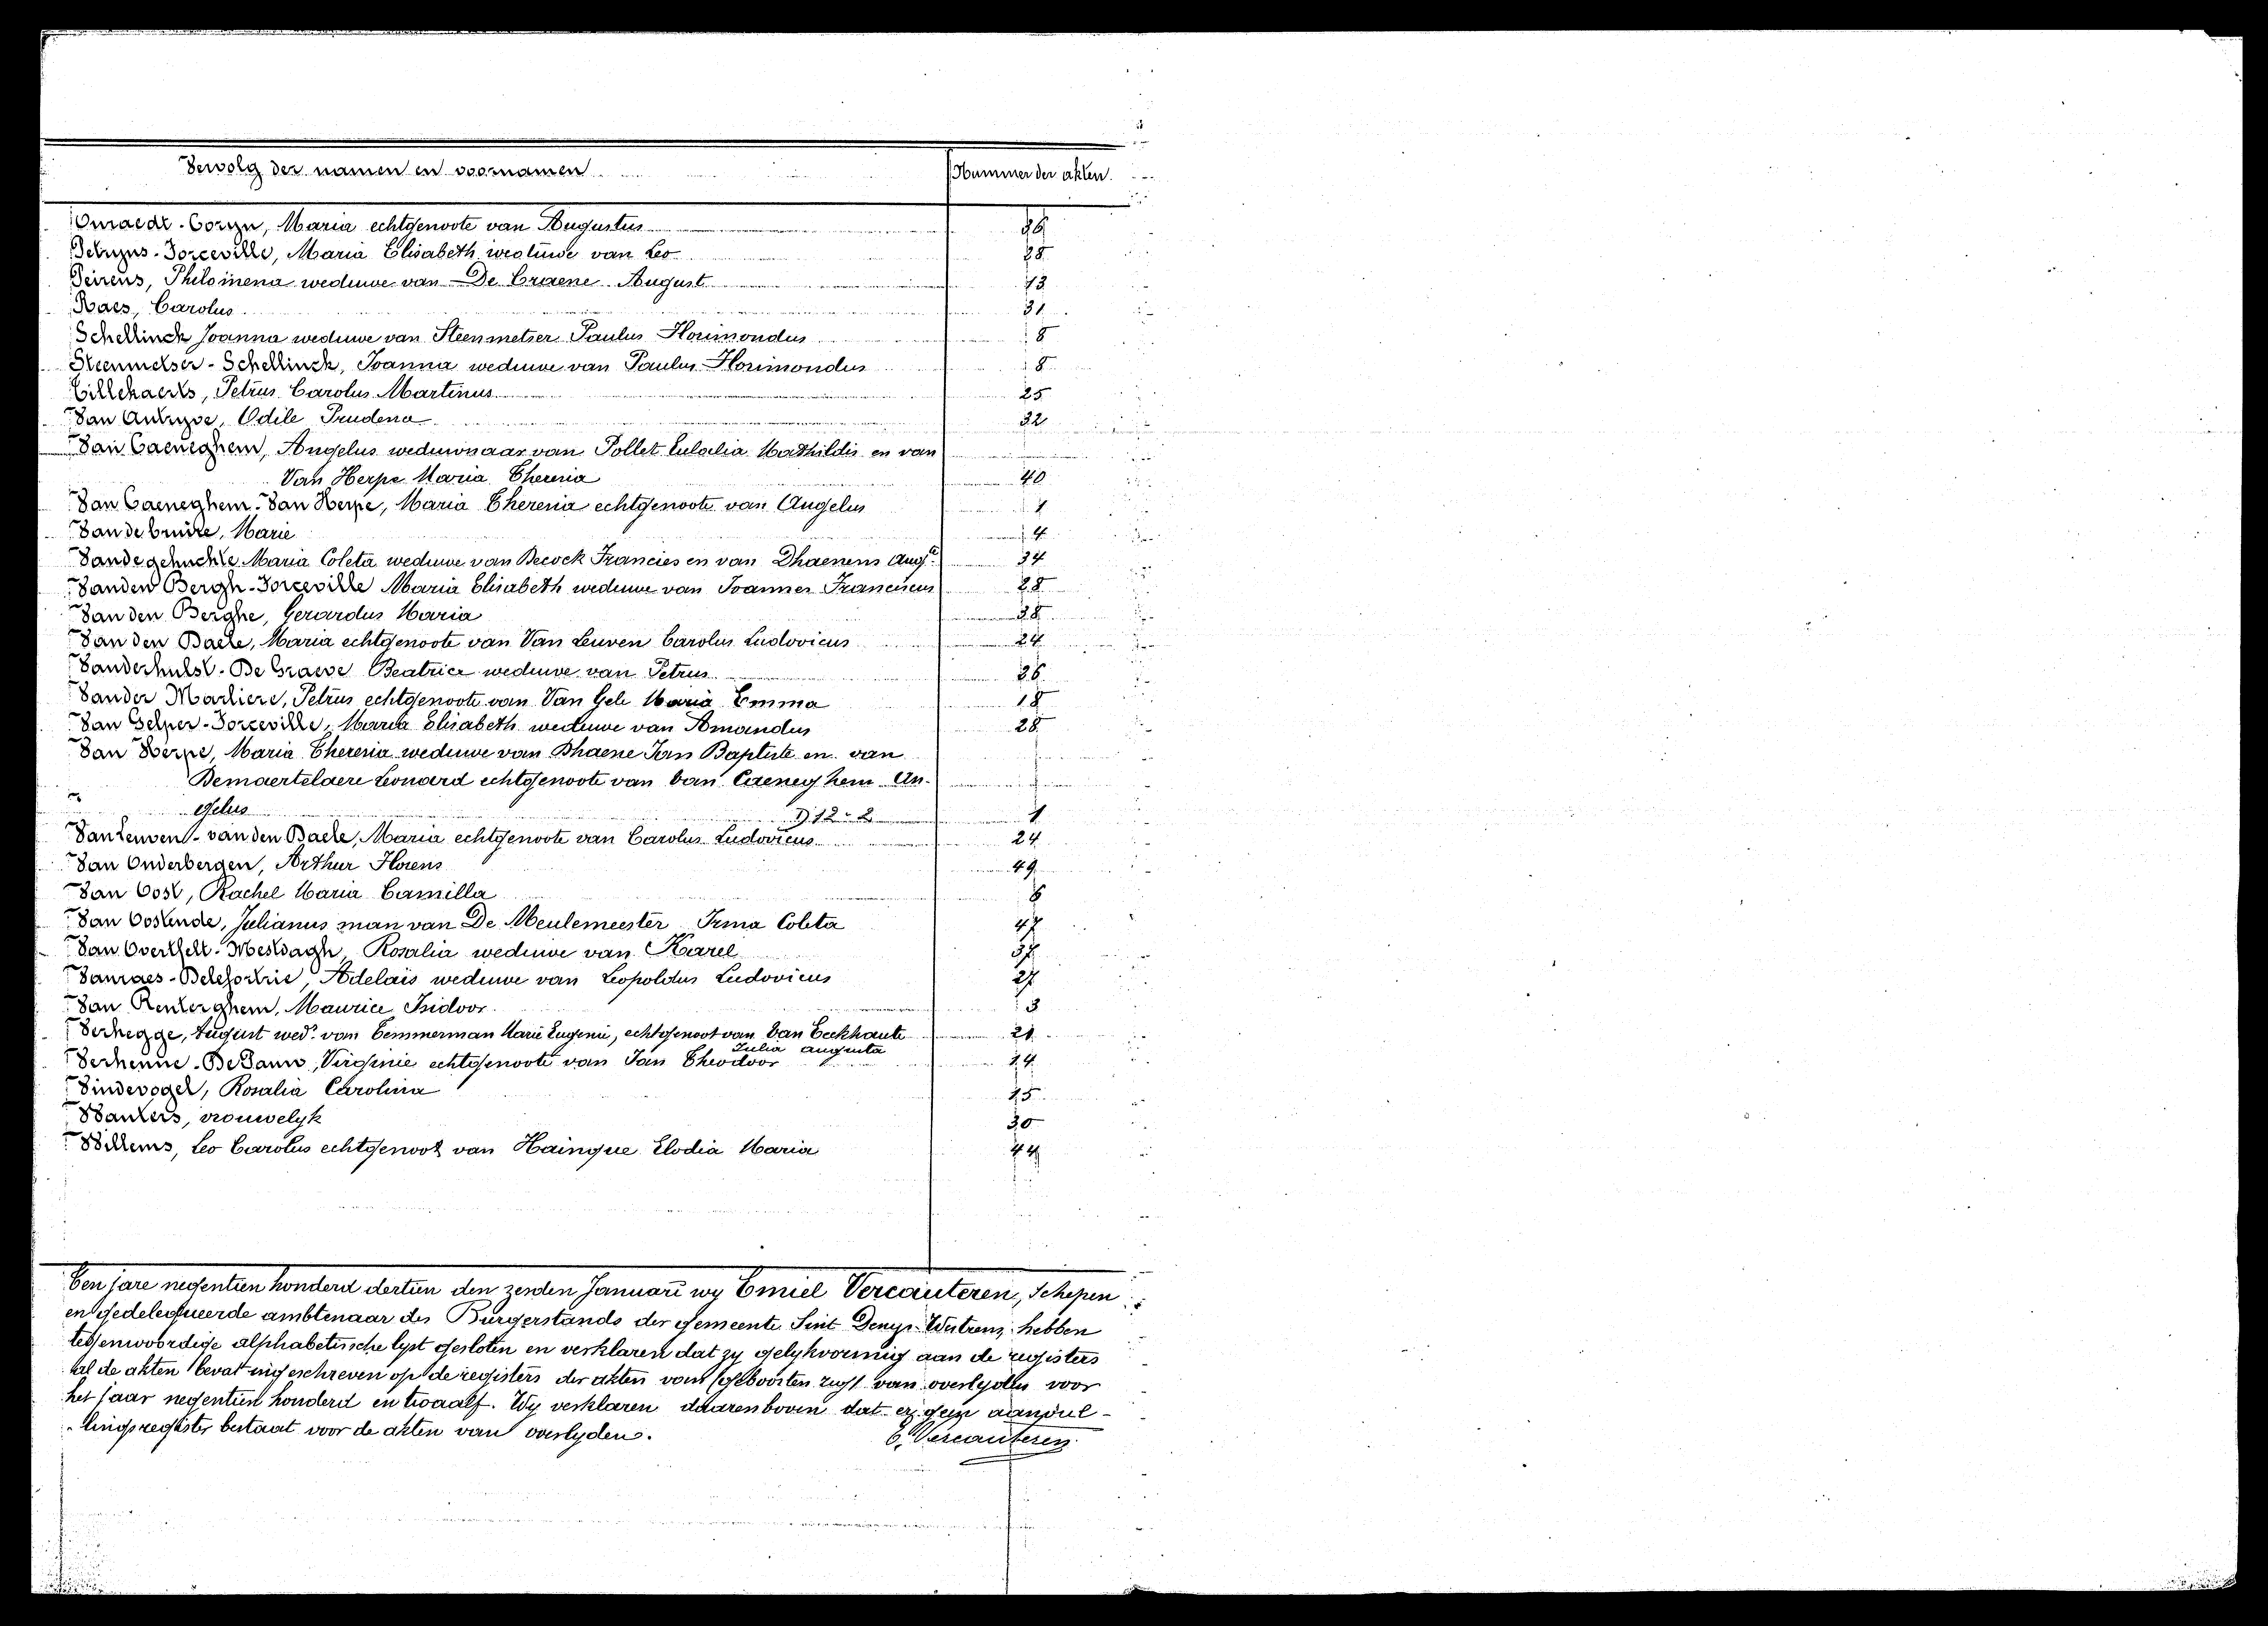 Vervolg der namen en voornamen Nummer der akten
Onraedt-Coryn, Maria echtgenoote van Augustus 36
Petryns-Forceville, Maria Elisabeth weduwe van Leo 28
Peirens, Philomena weduwe van De Craene August 43
Raes, Carolus 31
Schellinck Joanna weduwe van Steenmetser Paulus Florimondus 8
Steenmetser-Schellinck, Joanna weduwe van Paulus Florimondus 8
Tillekaerts, Petrus Carolus Martinus 25
Van Autryve, Odile Prudena 32
Van Caeneghem, Angelus weduwnaar van Pollet Eulalia Mathildis en van
Van Herpe Maria Theresia 40
Van Caeneghem-Van Herpe, Maria Theresia echtgenoote van Angelus 1
Van de bruäne, Marie 4
Vandegehuchte Maria Coleta weduwe van Becock Francies en van Dhaenens Augte 34
Vanden Bergh-Forceville Maria Elisabeth weduwe van Joannes Franciscus 28
Van den Berghe, Gerardus Maria 38
Van den Baele, Maria echtgenoote van Van Leuven Carolus Ludovicus 24
Vanderhulst-De Graeve Beatrice weduwe van Petrus 26
Vander Marliere, Petrus echtgenoote van Van Gele Maria Emma 18
Van Gelper-Forceville, Maria Elisabeth weduwe van Amandus 28
Van Herpe, Maria Theresia weduwe van Dhaene Jan Baptiste en van
Demaertelaere Leonard echtgenoote van Van Caeneghem An-
gelus D 12-2 1
Van Leuven-van den Baele, Maria echtgenoote van Carolus Ludovicus 24
Van Onderbergen, Arthur Florens 49
Van Oost, Rachel Maria Camilla 6
Van Oostende, Julianus man van De Meulemeester Irma Coleta 47
Van Overthelt-Mestdagh, Rosalia weduwe van Karel 37
Vanraes-Delefortrie, Adelais weduwe van Leopoldus Ludovicus 27
Van Renterghem, Maurice Isidoor 3
Verhegge, August wedr van Temmerman Marie Eugenie, echtgenoot van Van Eeckhaute 21
Julia Augusta
Verhenne-DeVann, Virginie echtgenoote van Jan Theodoor 14
Vindevogel, Rosalia Carolina 15
Wauters, vrouwelyk 30
Willems, Leo Carolus echtgenoot van Hainque Elodia Maria 44
Ten jare negentien honderd dertien den zesden Januari wy Emiel Vercauteren, schepen
en gedelegueerde ambtenaar des Burgerstands der gemeente Sint Denys-Westrem, hebben
tegenwoordige alphabetische lyst gesloten en verklaren dat zy gelykvormig aan de registers
al de akten bevat ingeschreven op de registers der akten van overlyden voor
het jaar negentien honderd en twaalf. Wy verklaren daarenboven dat er geen aanvul-
lingsregister bestaat voor de akten van overlyden.
E. Vercauteren